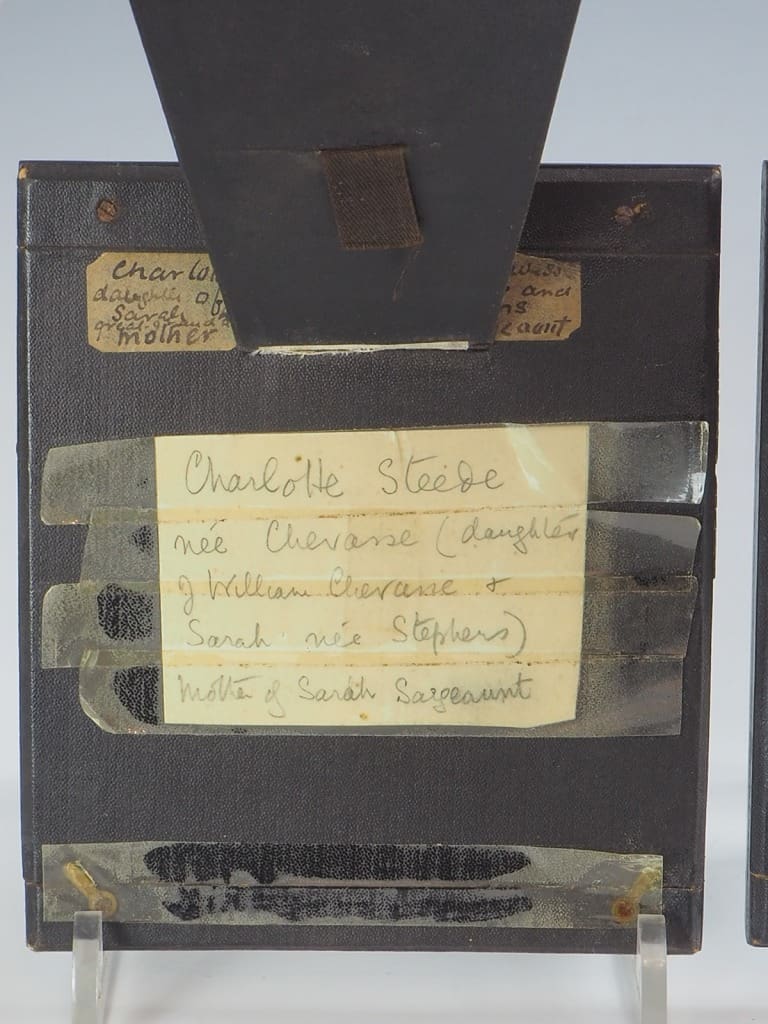 Charlo
daughter of
Sarah
great-grand
mother
and
ns
eaunt
Charlotte Steede
née Chevasse (daughter
of William Chevasse &
Sarah née Stephens)
Mother of Sarah Sargeaunt